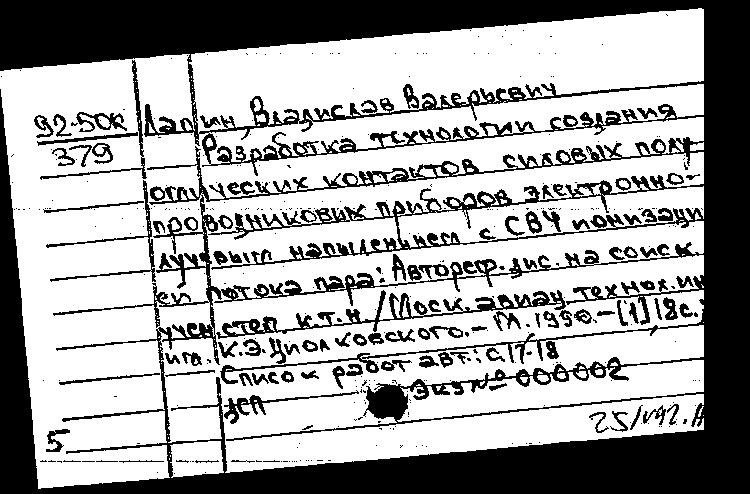 92-50к Лапин, Владислав Валерьевич
379 Разработка технологии создания
омических контактов силовых полу-
проводниковых приборов электронно-
лучевым напылением с СВЧ ионизаци
ей потока пара: Автореф. дис. на соиск.
учен. степ. к.т.н. / Моск. авиац. технол. ин
им. К.Э. Циолковского. - М. 1990. - [1] 18 с.;
Список работ авт.: с. 17-18
ДСП Экз № 000002
5